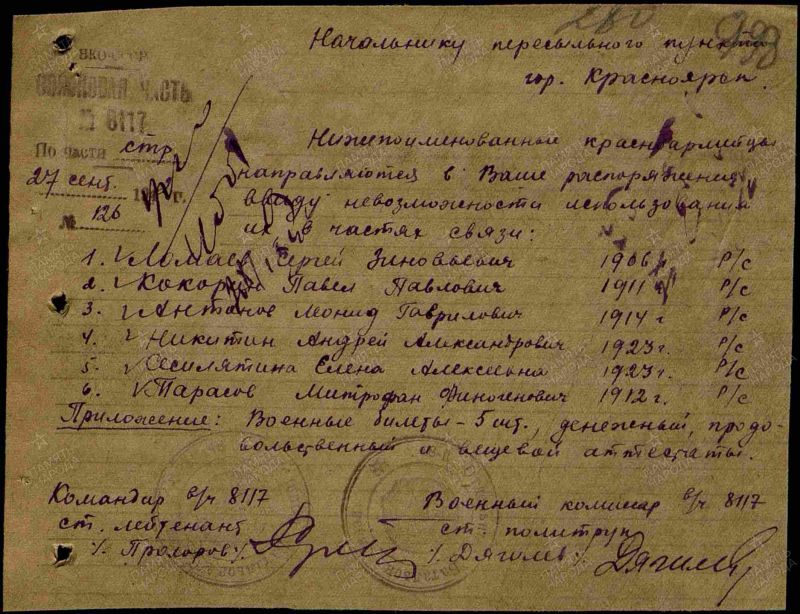 260
Начальнику пересыльного пункта
гор. Красноярск.
ВОЙСКОВАЯ ЧАСТЬ
8117
По части стр
27 сент.
№ 126
Нижепоименованные красноармейцы
направляются в Ваше распоряжение
ввиду невозможности использования
их в частях связи:
1. Ломаев Сергей Зиновьевич 1906 г Р/с
2. Павел Павлович 1911 г Р/с
3. Антонов Леонид Гаврилович 1914 г Р/с
4. Никитин Андрей Александрович 1923 г. Р/с
5. Сесилятина Елена Алексеевна 1923 г. Р/с
6. Тарасов Митрофан Финогенович 1912 г. Р/с
Приложение: Военные билеты – 5 шт., денежный, продо-
вольственный и вещевой аттестаты.
Командир в/ч 8117
ст. лейтенант
/. Прохоров ./
Военный комиссар в/ч 8117
ст. политрук
/. Дягилев ./